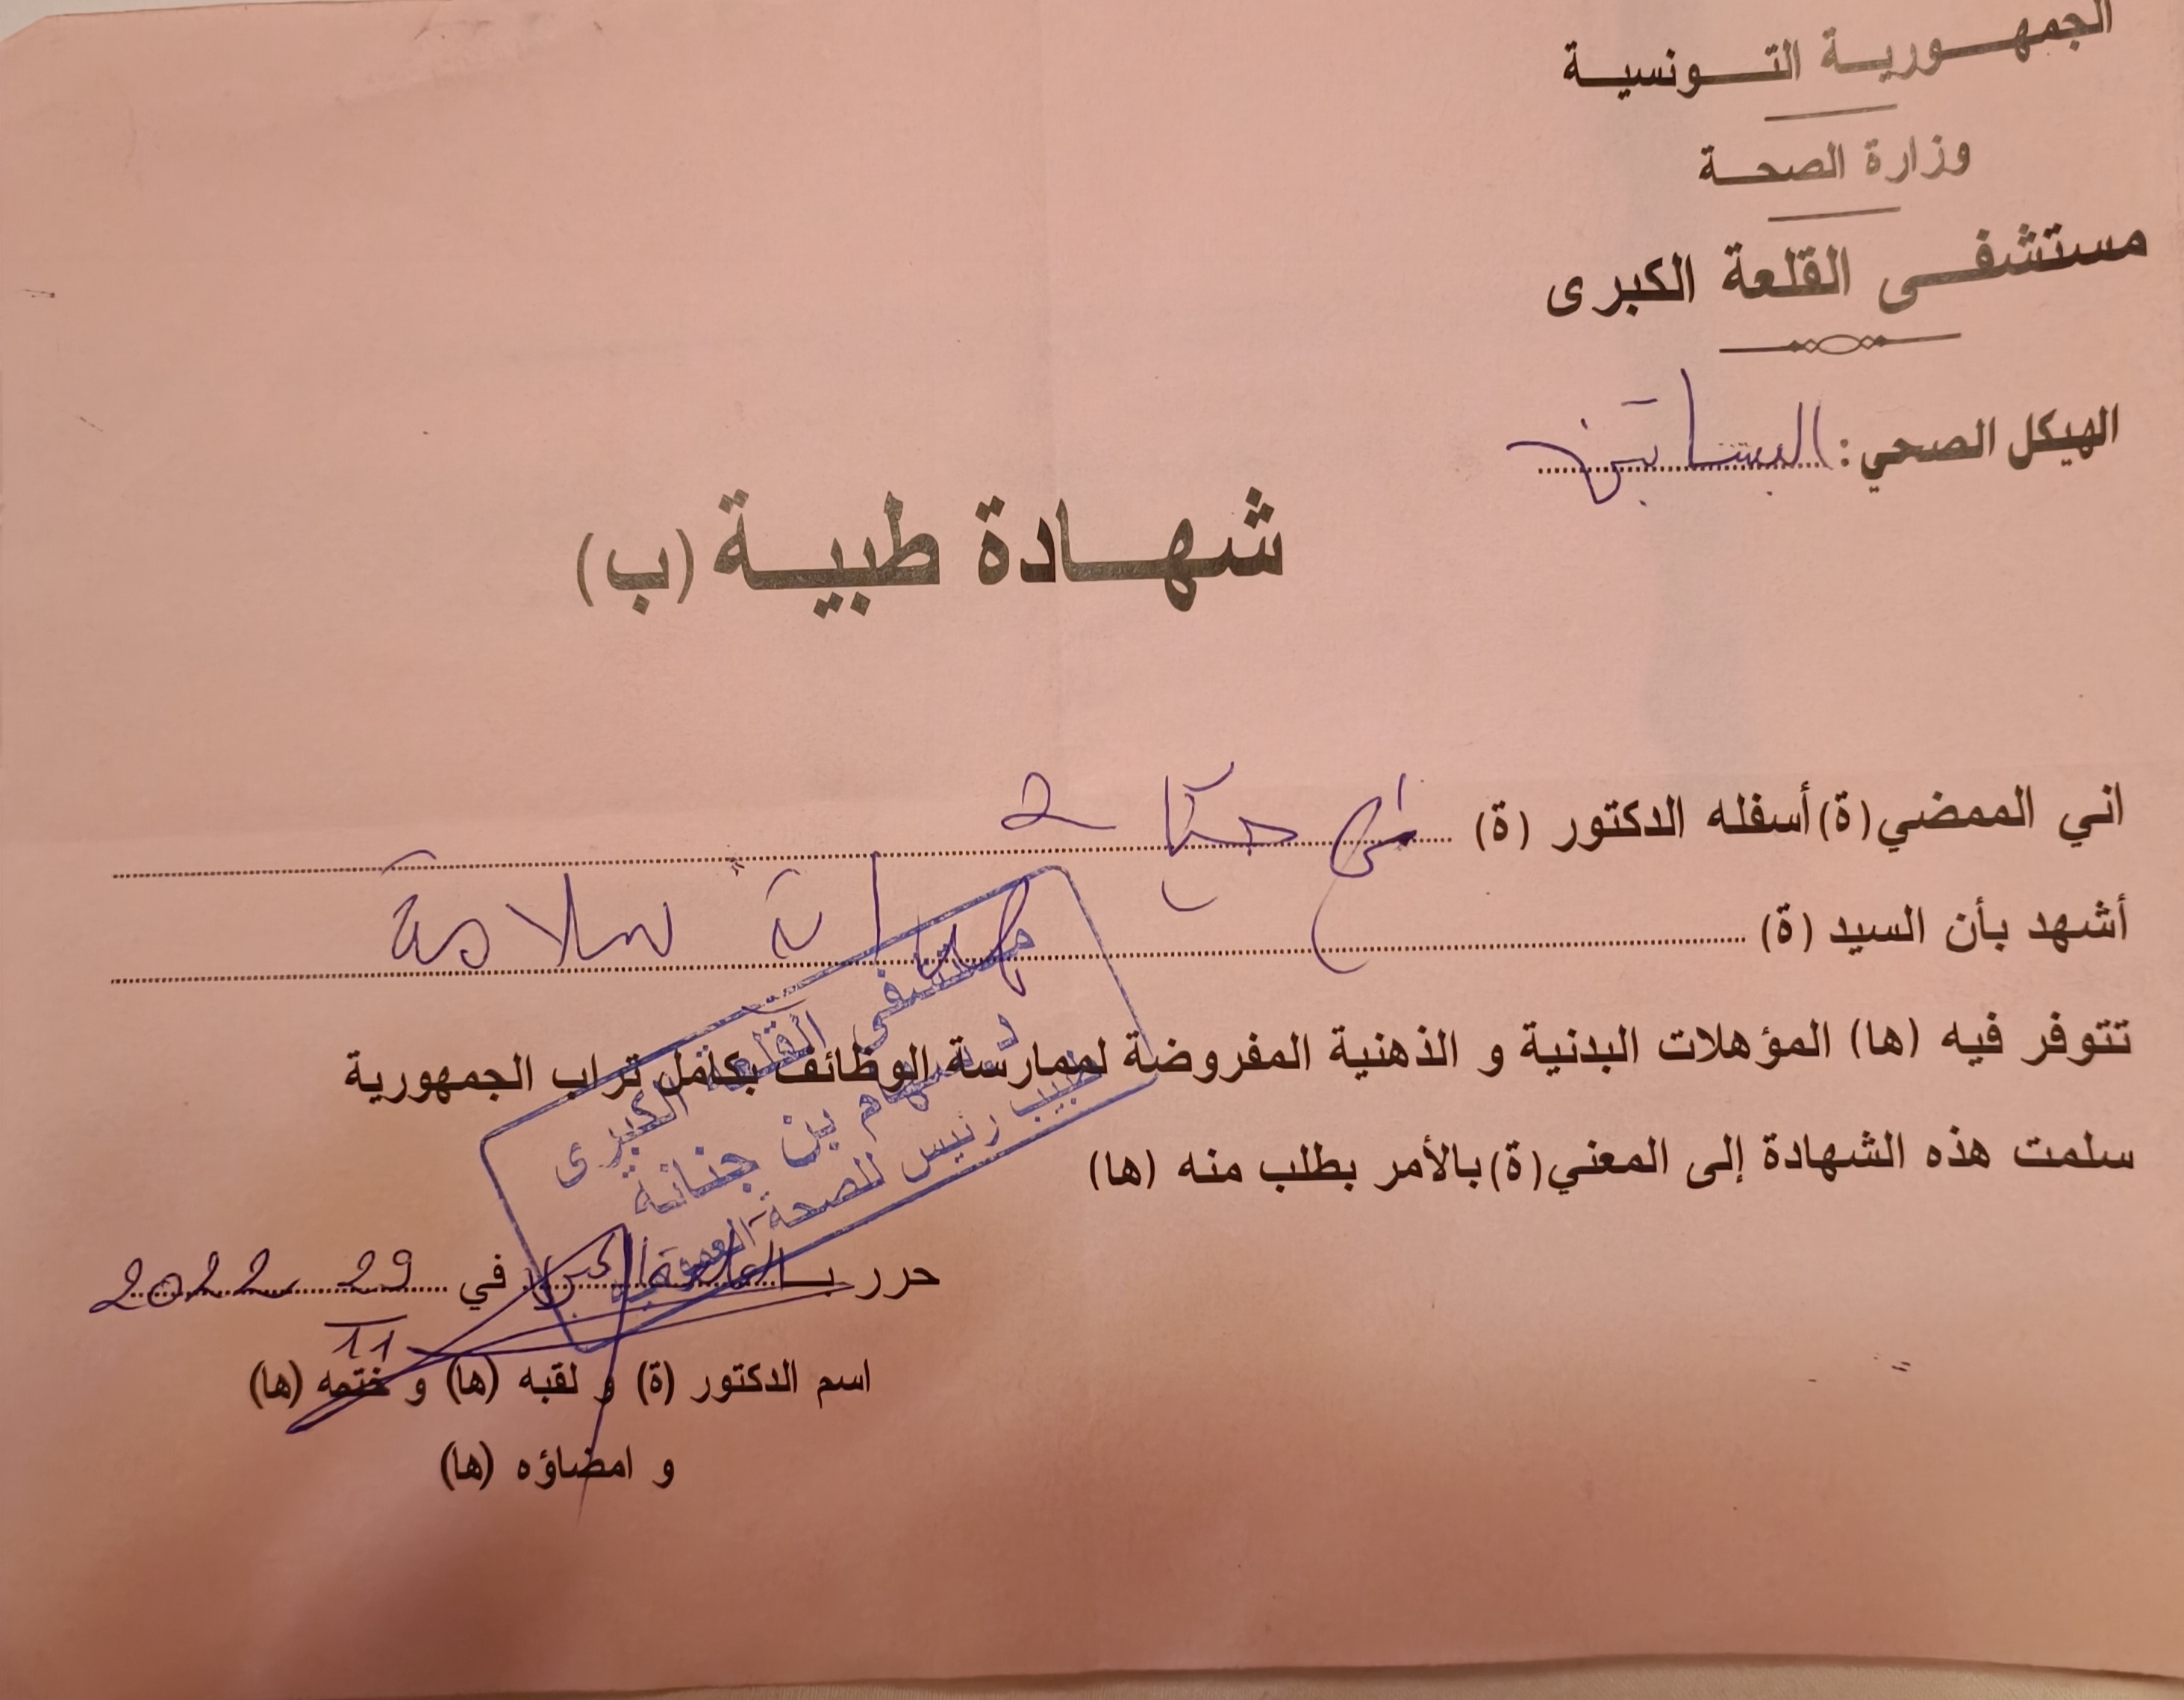 الجمهورية التونسية
وزارة الصحة
مستشفى القلعة الكبرى
الهيكل الصحي : البساتين
شهادة طبية (ب)
اني الممضي (ة) أسفله الدكتور (ة)
أشهد بأن السيد (ة) سلامة
تتوفر فيه (ها) المؤهلات البدنية و الذهنية المفروضة لممارسة الوظائف بكامل تراب الجمهورية
سلمت هذه الشهادة إلى المعني (ة) بالأمر بطلب منه (ها)
مستشفى القلعة الكبرى
د. سهام بن جنانة
طبيب رئيس للصحة العمومية
حرر بـ القلعة الكبرى في 29 2022
11
اسم الدكتور (ة) و لقبه (ها) و ختمه (ها)
و امضاؤه (ها)